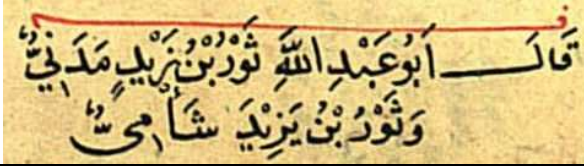 قَالَ أَبُو عَبْدِ اللَّهِ ثَوْرُ بْنُ زَيْدٍ مَدَنِيٌّ
وَثَوْرُ بْنُ يَزِيْدَ شَأْمِيٌّ